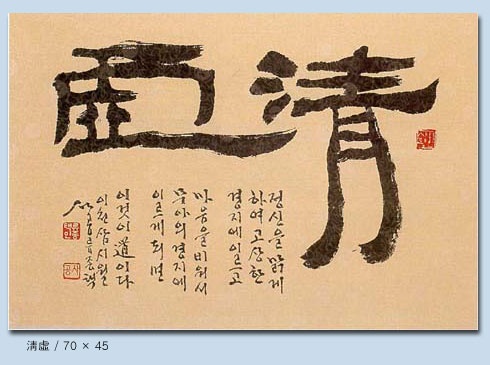 淸虛
정신을 맑게
하여 고상한
경지에 이르고
마음을 비워서
무아의 경지에
이르게 되면
이것이 道이다
이천삼 시월
淸虛 / 70 × 45